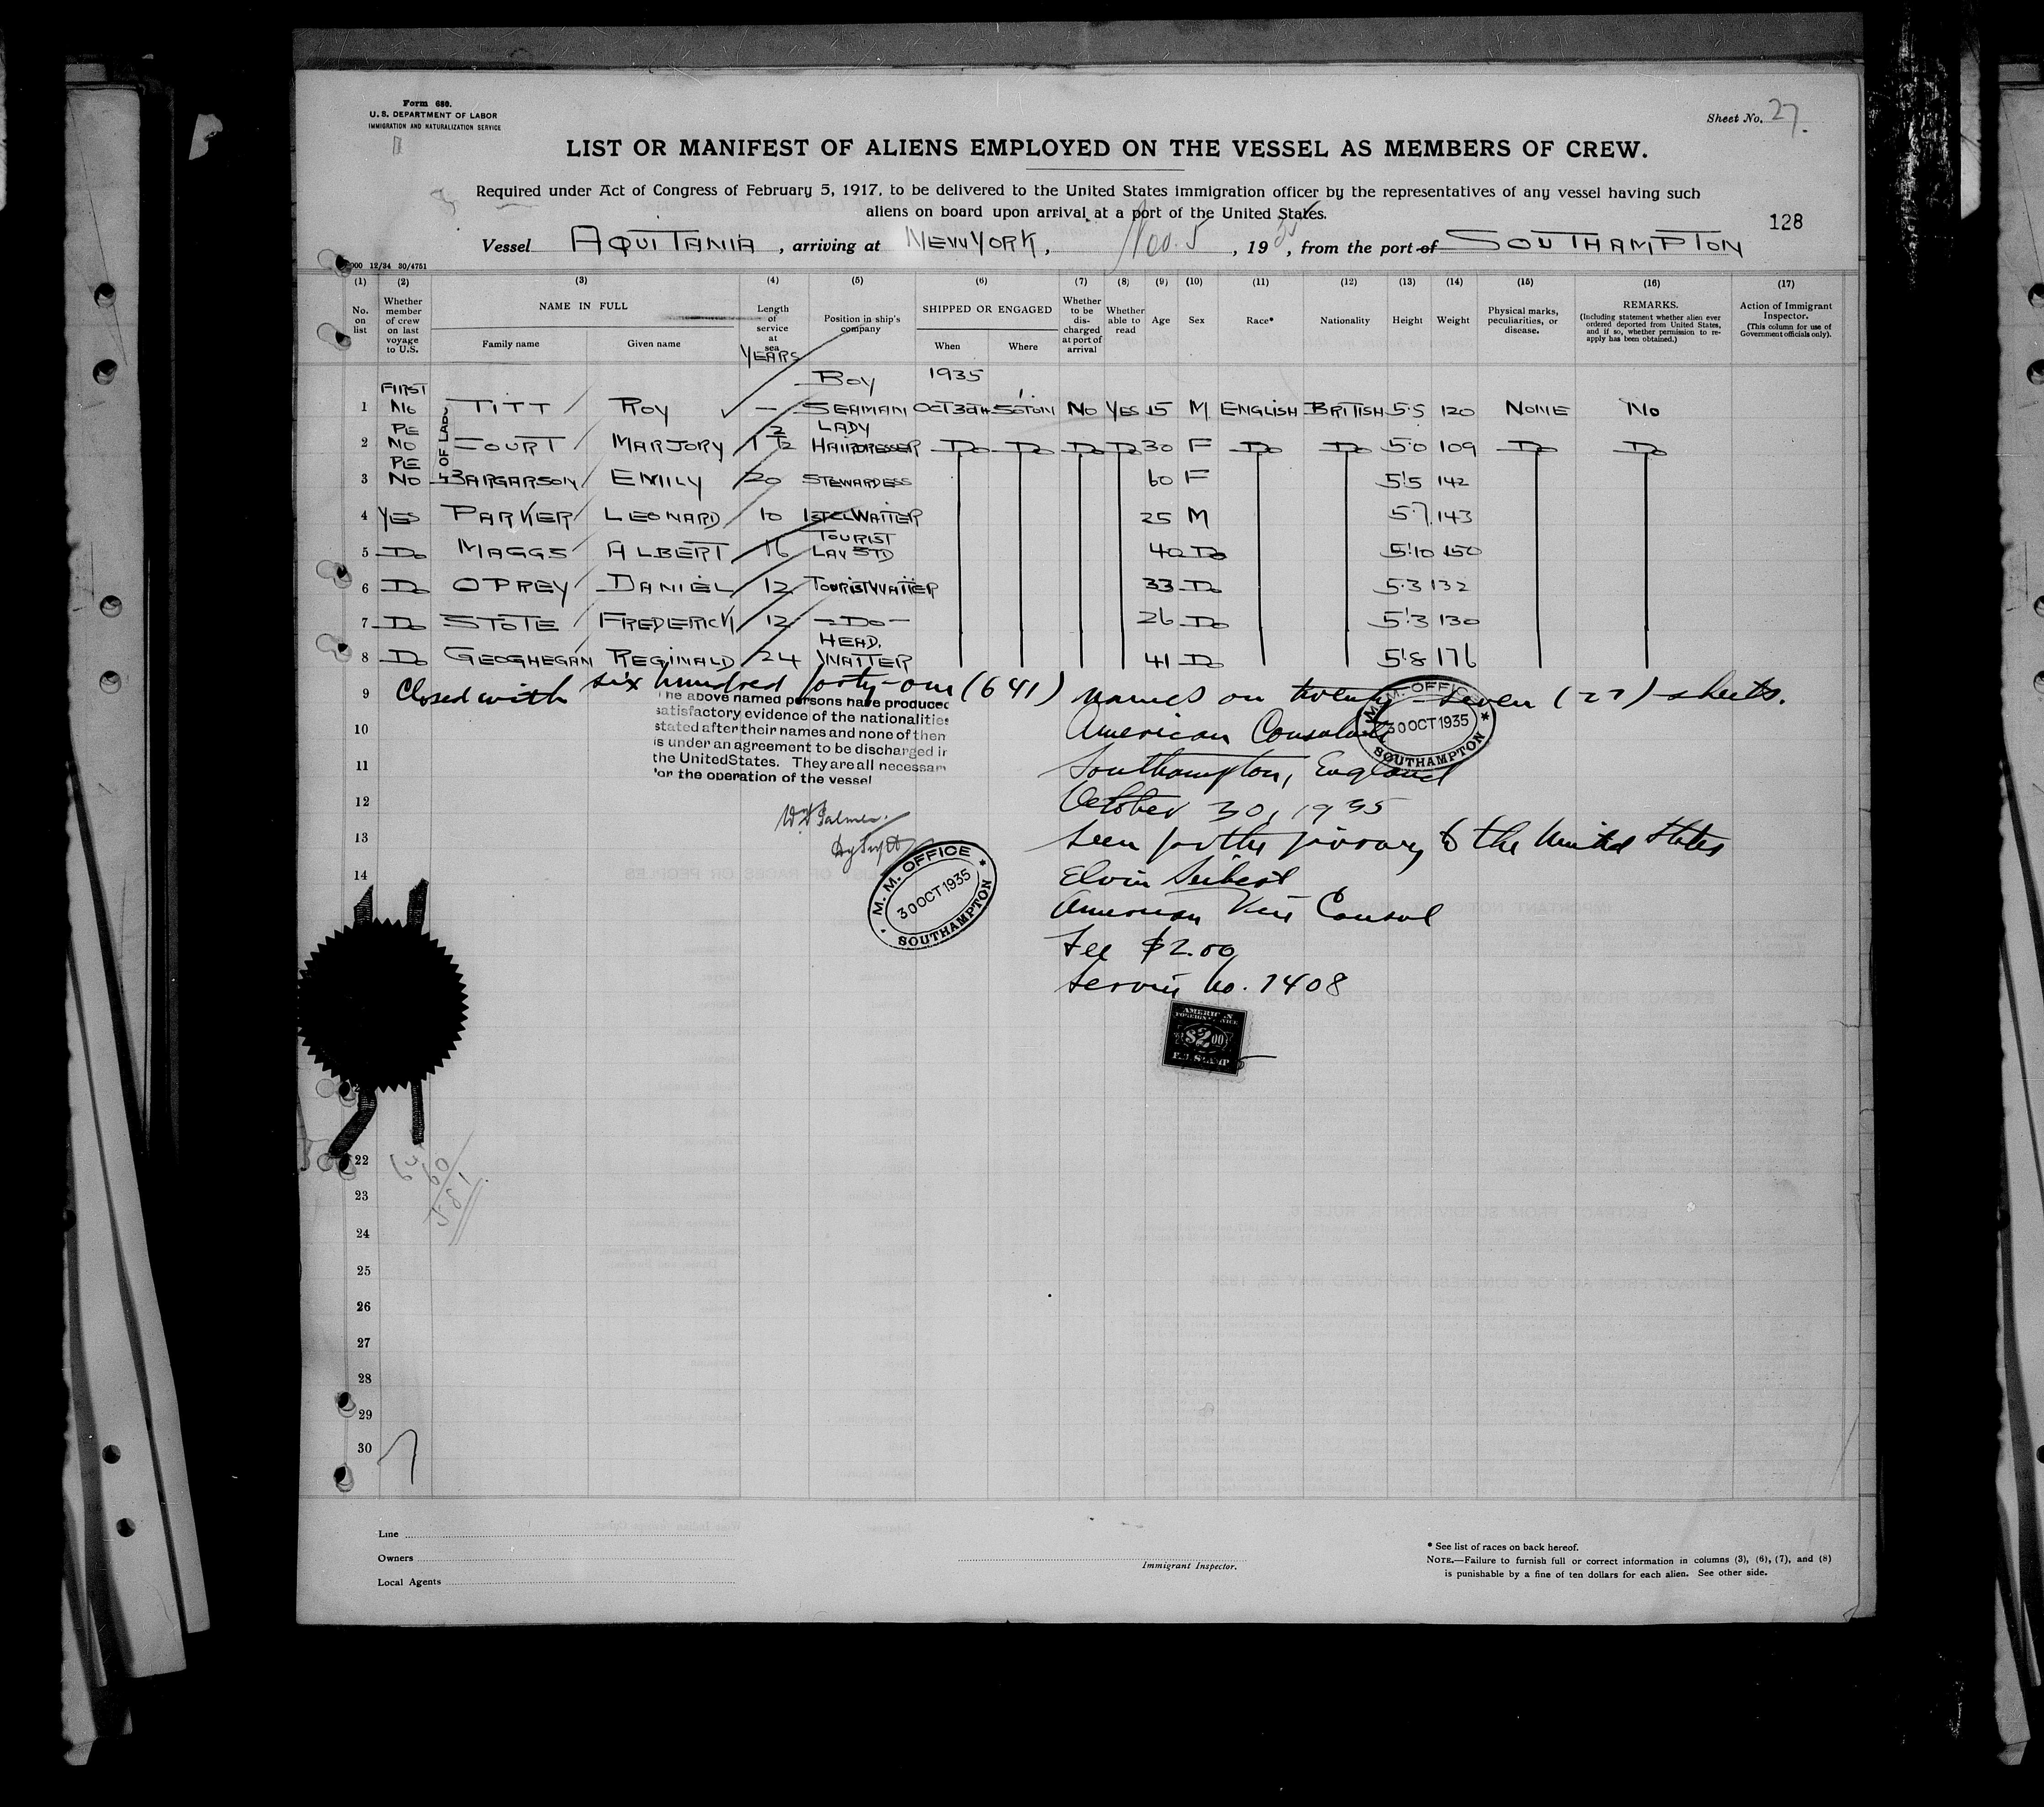 Form 680.
U. S. DEPARTMENT OF LABOR
IMMIGRATION AND NATURALIZATION SERVICE
Sheet No. 27.
LIST OR MANIFEST OF ALIENS EMPLOYED ON THE VESSEL AS MEMBERS OF CREW.
Required under Act of Congress of February 5, 1917, to be delivered to the United States immigration officer by the representatives of any vessel having such
aliens on board upon arrival at a port of the United States.
128
Vessel AQUITANIA, arriving at NEW YORK, Nov. 5, 1935, from the port of SOUTHAMPTON
000 12/34 30/4751
(1) (2) (3) (4) (5) (6) (7) (8) (9) (10) (11) (12) (13) (14) (15) (16) (17)
No. on list
Whether member of crew on last voyage to U.S.
NAME IN FULL
Family name
Given name
Length of service at sea
YEARS
Position in ship's company
SHIPPED OR ENGAGED
When
Where
Whether to be discharged at port of arrival
Whether able to read
Age
Sex
Race*
Nationality
Height
Weight
Physical marks, peculiarities, or disease.
REMARKS.
(Including statement whether alien ever ordered deported from United States, and if so, whether permission to reapply has been obtained.)
Action of Immigrant Inspector.
(This column for use of Government officials only).
FIRST BOY 1935
1 TITT ROY — SEAMAN OCT 30TH S'OTON NO YES 15 M ENGLISH BRITISH 5.5 120 NONE NO
RE LADY
2 NO COURT MARJORY 1 1/2 HAIRDRESSER DO DO DO DO 30 F DO DO 5.0 109 DO DO
RE
3 NO BARGARSON EMILY 20 STEWARDESS 60 F 5'5 142
4 YES PARKER LEONARD 10 1ST CL WAITER 25 M 5.7 143
TOURIST
5 DO MAGGS ALBERT 16 LAV STD 40 DO 5'10 150
6 DO OPREY DANIEL 12 TOURIST WAITER 33 DO 5.3 132
7 DO STOTE FREDERICK 12 —DO— 26 DO 5'3 130
HEAD.
8 DO GEOGHEGAN REGINALD 24 WAITER 41 DO 5'8 176
9 Closed with six hundred forty-one (641) names on twenty-seven (27) sheets.
The above named persons have produced
satisfactory evidence of the nationalities
stated after their names and none of them
is under an agreement to be discharged in
the United States. They are all necessary
for the operation of the vessel
M. M. OFFICE
30 OCT 1935
SOUTHAMPTON
10 American Consulate
11 Southampton, England
12 October 30, 1935
13 Seen for the journey to the United States
14 Elvin Seibert
American Vice Consul
Fee $2.00
Service No. 1408
M. M. OFFICE
30 OCT 1935
SOUTHAMPTON
AMERICAN
FOREIGN SERVICE
$2.00
FEE STAMP
22
23
24
25
26
27
28
29
30
Line
Owners
Local Agents
Immigrant Inspector.
* See list of races on back hereof.
NOTE.—Failure to furnish full or correct information in columns (3), (6), (7), and (8)
is punishable by a fine of ten dollars for each alien. See other side.